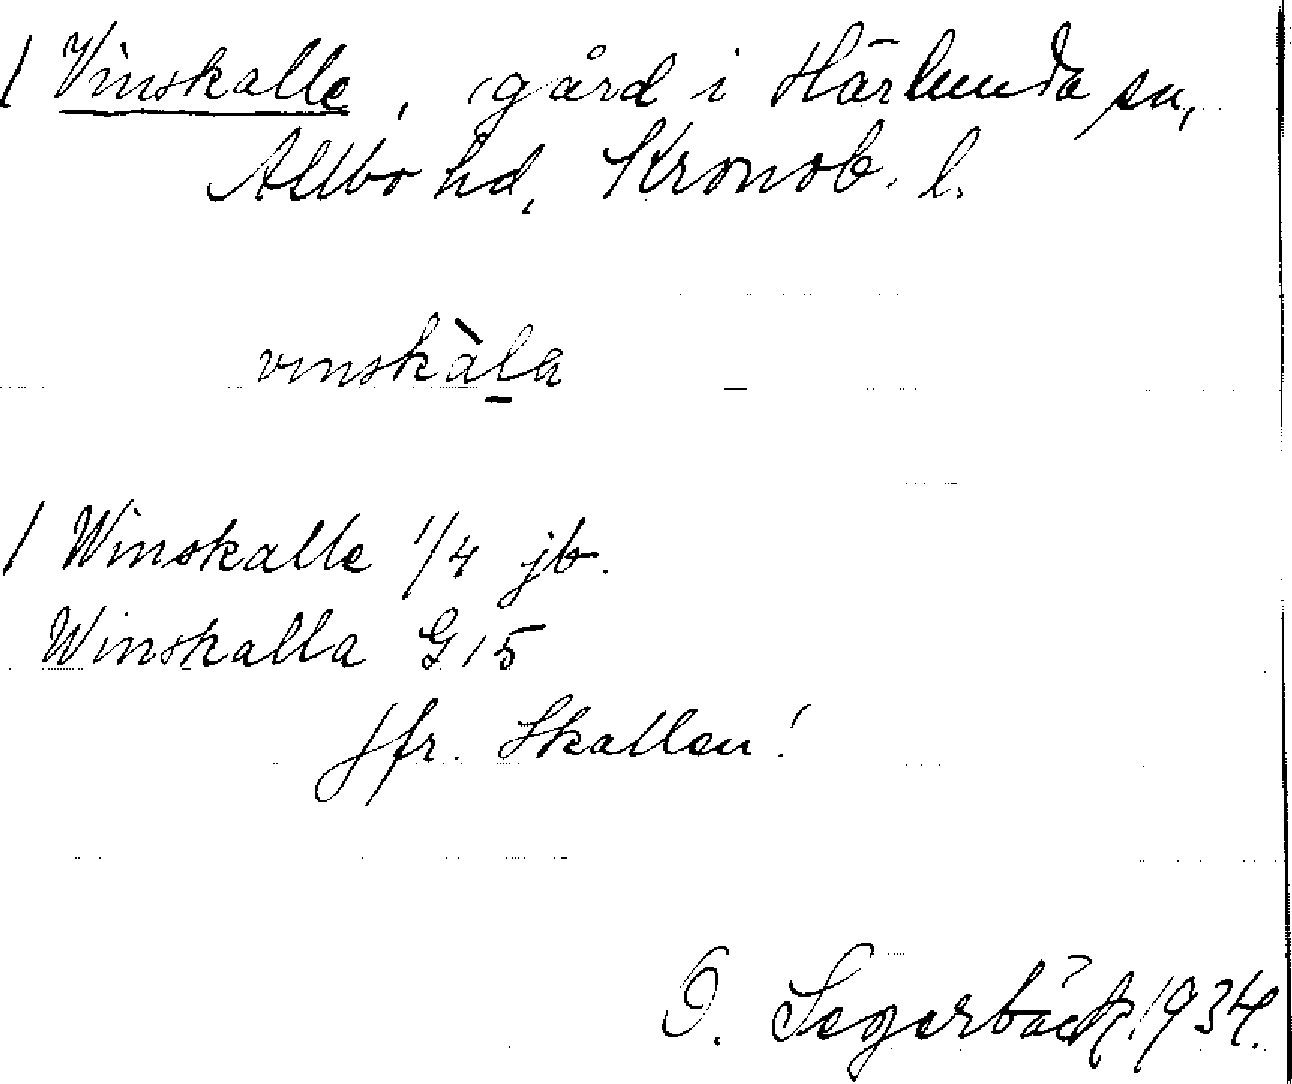 / Vinskalle, gård i Härlunda sn,
Allbo hd, Kronob. l.
vinskàla
/ Winskalle 1/4 jb.
Winskalla G 15
Jfr. Skallen!
O. Segerbäck, 1934.